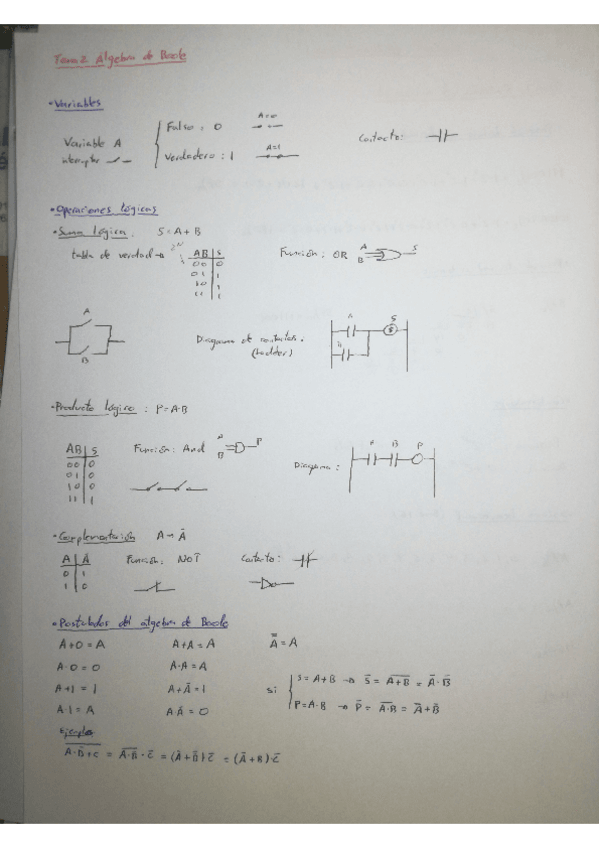 Tema 2 Álgebra de Boole
• Variables
Variable A
interruptor
Falso : 0
A=0
Verdadero : 1
A=1
Contacto:
• Operaciones lógicas
• Suma lógica: S = A + B
tabla de verdad → 2^N
AB S
00 0
01 1
10 1
11 1
Función: OR
A
B
S
A
B
Diagrama de contactos.
(Ladder)
A
B
S
• Producto lógico : P = A·B
AB S
00 0
01 0
10 0
11 1
Función: And
A
B
P
Diagrama :
A B P
• Complementación A → Ā
A Ā
0 1
1 0
Función: NOT
Contacto:
• Postulados del álgebra de Boole
A+0 = A A+A = A A̿ = A
A·0 = 0 A·A = A
A+1 = 1 A+Ā = 1
A·1 = A A·Ā = 0
si
S = A+B → S̅ = A̅+̅B̅ = A̅·B̅
P = A·B → P̅ = A̅·̅B̅ = A̅+B̅
Ejemplo
A̅·̅B̿+̅C̅ = A̅·̅B̿·C̅ = (A̅+B̿)·C̅ = (A̅+B)·C̅